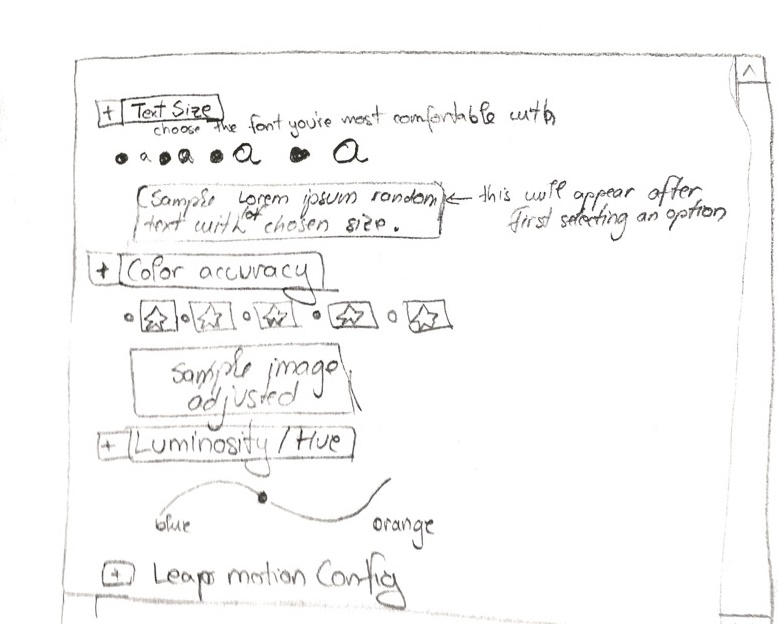 + Text Size
choose the font you're most comfortable with
a a a a
Sample Lorem ipsum random ← this will appear after
text with chosen size. first selecting an option
+ Color accuracy
Sample image
adjusted
+ Luminosity / Hue
blue orange
+ Leap motion Config